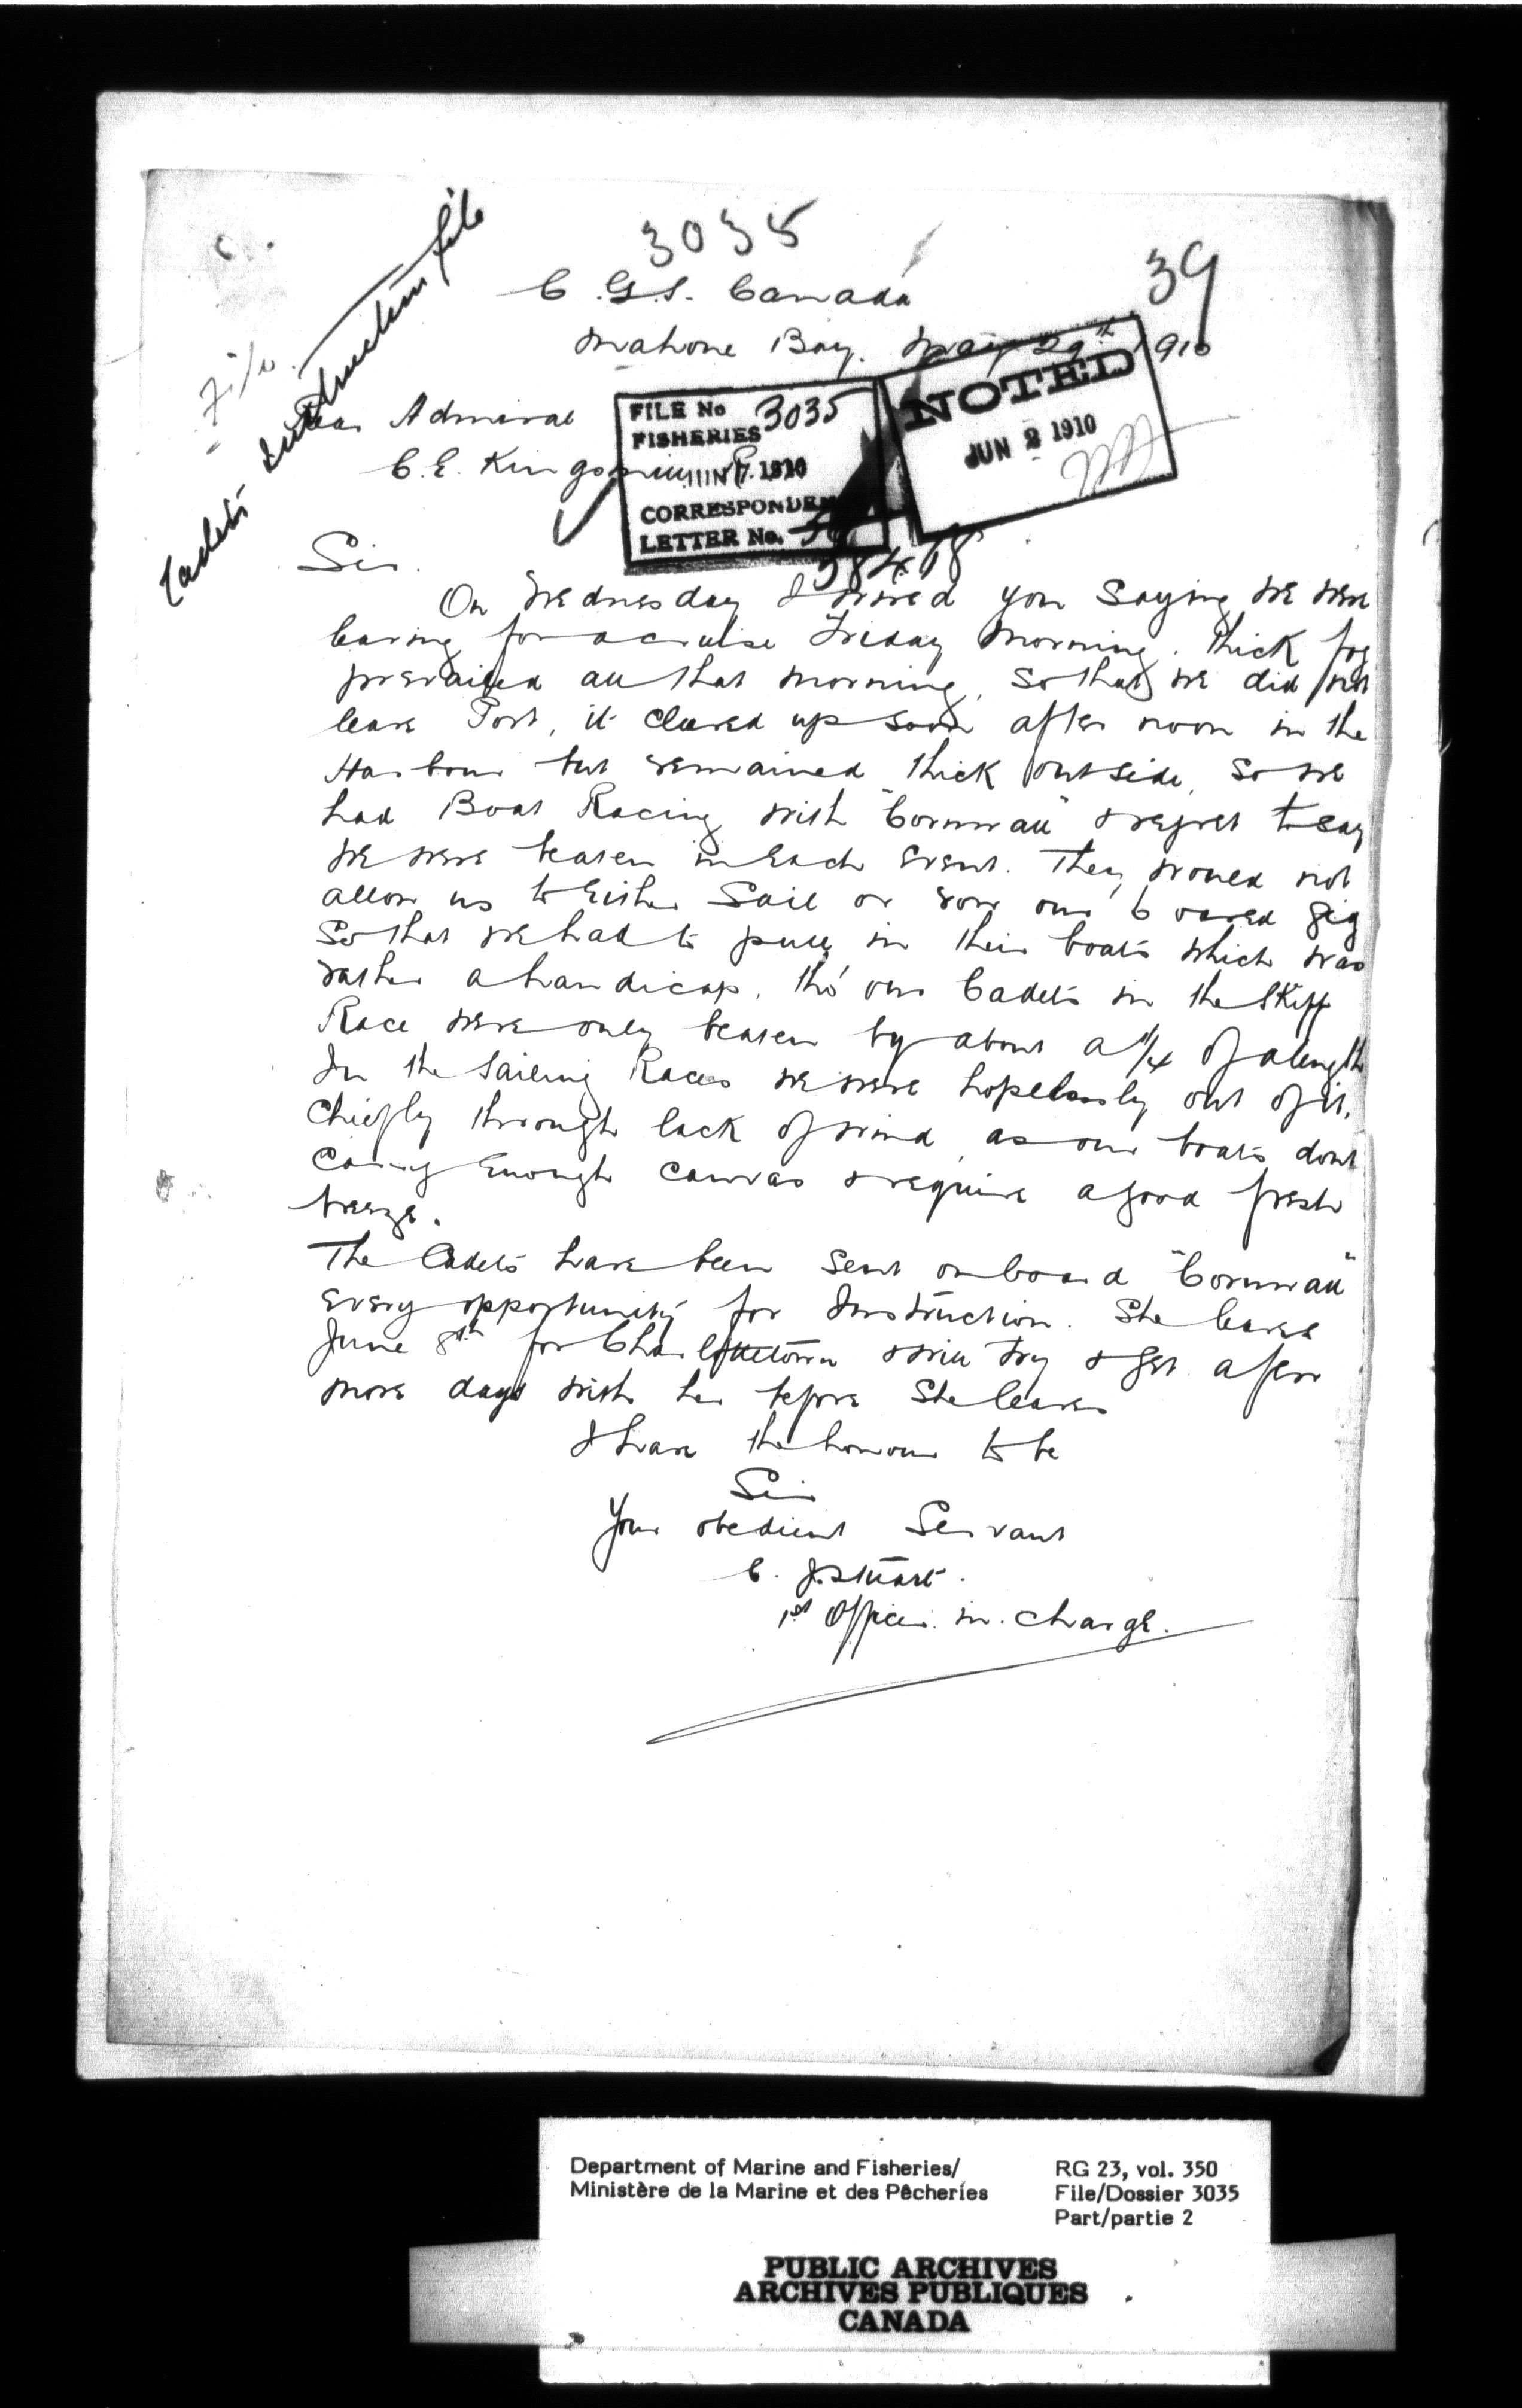 3035
39
C.G.S. Canada
Mahone Bay. May 29th 1910
File
Cadets Instruction file
Rear Admiral
C.E. Kingsmill
FILE No 3035
FISHERIES
JUN 7 1910
CORRESPONDEN
LETTER No.
38468
NOTED
JUN 2 1910
Sir.
On Wednesday I wired you saying we were
leaving for a cruise Friday morning. Thick fog
prevailed all that morning, so that we did not
leave Port, it cleared up soon after noon in the
Harbour but remained thick outside, so we
had Boat Racing with "Cornwall" & regret to say
we were beaten in Each event. They would not
allow us to Either Sail or row our 6 oared gig
So that we had to pull in their boats which was
rather a handicap, tho' our Cadets in the Skiff
Race were only beaten by about a 1/4 of a length
In the Sailing Races we were hopelessly out of it,
Chiefly through lack of wind, as our boats dont
carry Enough canvas & require a good fresh
breeze.
The Cadets have been sent onboard "Cornwall"
Every opportunity for Instruction. She leaves
June 8th for Charlottetown & will try & get a few
more days with her before She leaves
I have the honour to be
Sir
Your obedient Servant
C. J. Stuart.
1st Officer in charge.
Department of Marine and Fisheries/
Ministère de la Marine et des Pêcheries
RG 23, vol. 350
File/Dossier 3035
Part/partie 2
PUBLIC ARCHIVES
ARCHIVES PUBLIQUES
CANADA